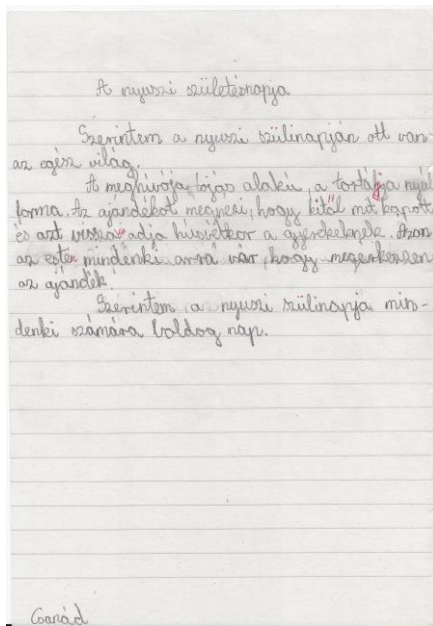 A nyuszi születésnapja
Szerintem a nyuszi szülinapján ott van
az egész világ.
A meghívója tojás alakú, a tortája nyúl
forma. Az ajándékot megnézi, hogy kitől mit kapott
és azt vissza adja húsvétkor a gyerekeknek. Azon
az estén mindenki arra vár, hogy megérkezzen
az ajándék!
Szerintem a nyuszi szülinapja min-
denki számára boldog nap.
Csanád